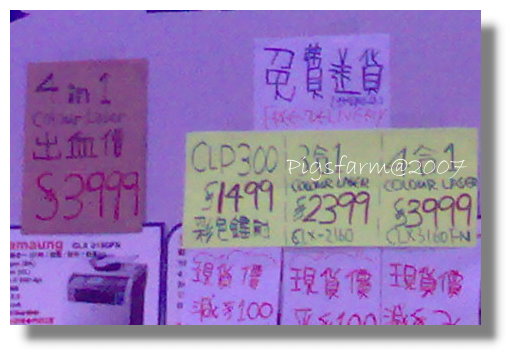 4 in 1
Colour Laser
出血價
$3999
免費送貨
FREE DELIVERY
CLP300
$1499
彩色鐳射
3合1
COLOUR LASER
$2399
CLX-2160
4合1
COLOUR LASER
$3999
CLX3160FN
Pigsfarm@2007
amsung CLX 3160FN
現貨價
減$100
現貨價
現貨價